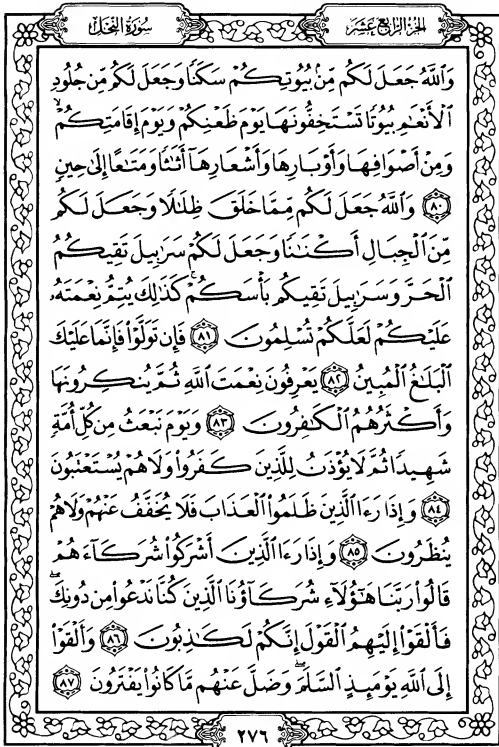 سُورَةُ النَّحْلِ
الجُزْءُ الرَّابِعَ عَشَرَ
وَاللَّهُ جَعَلَ لَكُم مِّنۢ بُيُوتِكُمْ سَكَنًا وَجَعَلَ لَكُم مِّن جُلُودِ
ٱلْأَنْعَٰمِ بُيُوتًا تَسْتَخِفُّونَهَا يَوْمَ ظَعْنِكُمْ وَيَوْمَ إِقَامَتِكُمْ ۙ
وَمِنْ أَصْوَافِهَا وَأَوْبَارِهَا وَأَشْعَارِهَآ أَثَٰثًا وَمَتَٰعًا إِلَىٰ حِينٍ
﴿٨٠﴾ وَٱللَّهُ جَعَلَ لَكُم مِّمَّا خَلَقَ ظِلَٰلًا وَجَعَلَ لَكُم
مِّنَ ٱلْجِبَالِ أَكْنَٰنًا وَجَعَلَ لَكُمْ سَرَٰبِيلَ تَقِيكُمُ
ٱلْحَرَّ وَسَرَٰبِيلَ تَقِيكُم بَأْسَكُمْ ۚ كَذَٰلِكَ يُتِمُّ نِعْمَتَهُۥ
عَلَيْكُمْ لَعَلَّكُمْ تُسْلِمُونَ ﴿٨١﴾ فَإِن تَوَلَّوْا۟ فَإِنَّمَا عَلَيْكَ
ٱلْبَلَٰغُ ٱلْمُبِينُ ﴿٨٢﴾ يَعْرِفُونَ نِعْمَتَ ٱللَّهِ ثُمَّ يُنكِرُونَهَا
وَأَكْثَرُهُمُ ٱلْكَٰفِرُونَ ﴿٨٣﴾ وَيَوْمَ نَبْعَثُ مِن كُلِّ أُمَّةٍ
شَهِيدًا ثُمَّ لَا يُؤْذَنُ لِلَّذِينَ كَفَرُوا۟ وَلَا هُمْ يُسْتَعْتَبُونَ
﴿٨٤﴾ وَإِذَا رَءَا ٱلَّذِينَ ظَلَمُوا۟ ٱلْعَذَابَ فَلَا يُخَفَّفُ عَنْهُمْ وَلَا هُمْ
يُنظَرُونَ ﴿٨٥﴾ وَإِذَا رَءَا ٱلَّذِينَ أَشْرَكُوا۟ شُرَكَآءَهُمْ
قَالُوا۟ رَبَّنَا هَٰٓؤُلَآءِ شُرَكَآؤُنَا ٱلَّذِينَ كُنَّا نَدْعُوا۟ مِن دُونِكَ ۖ
فَأَلْقَوْا۟ إِلَيْهِمُ ٱلْقَوْلَ إِنَّكُمْ لَكَٰذِبُونَ ﴿٨٦﴾ وَأَلْقَوْا۟
إِلَى ٱللَّهِ يَوْمَئِذٍ ٱلسَّلَمَ ۖ وَضَلَّ عَنْهُم مَّا كَانُوا۟ يَفْتَرُونَ ﴿٨٧﴾
٢٧٦